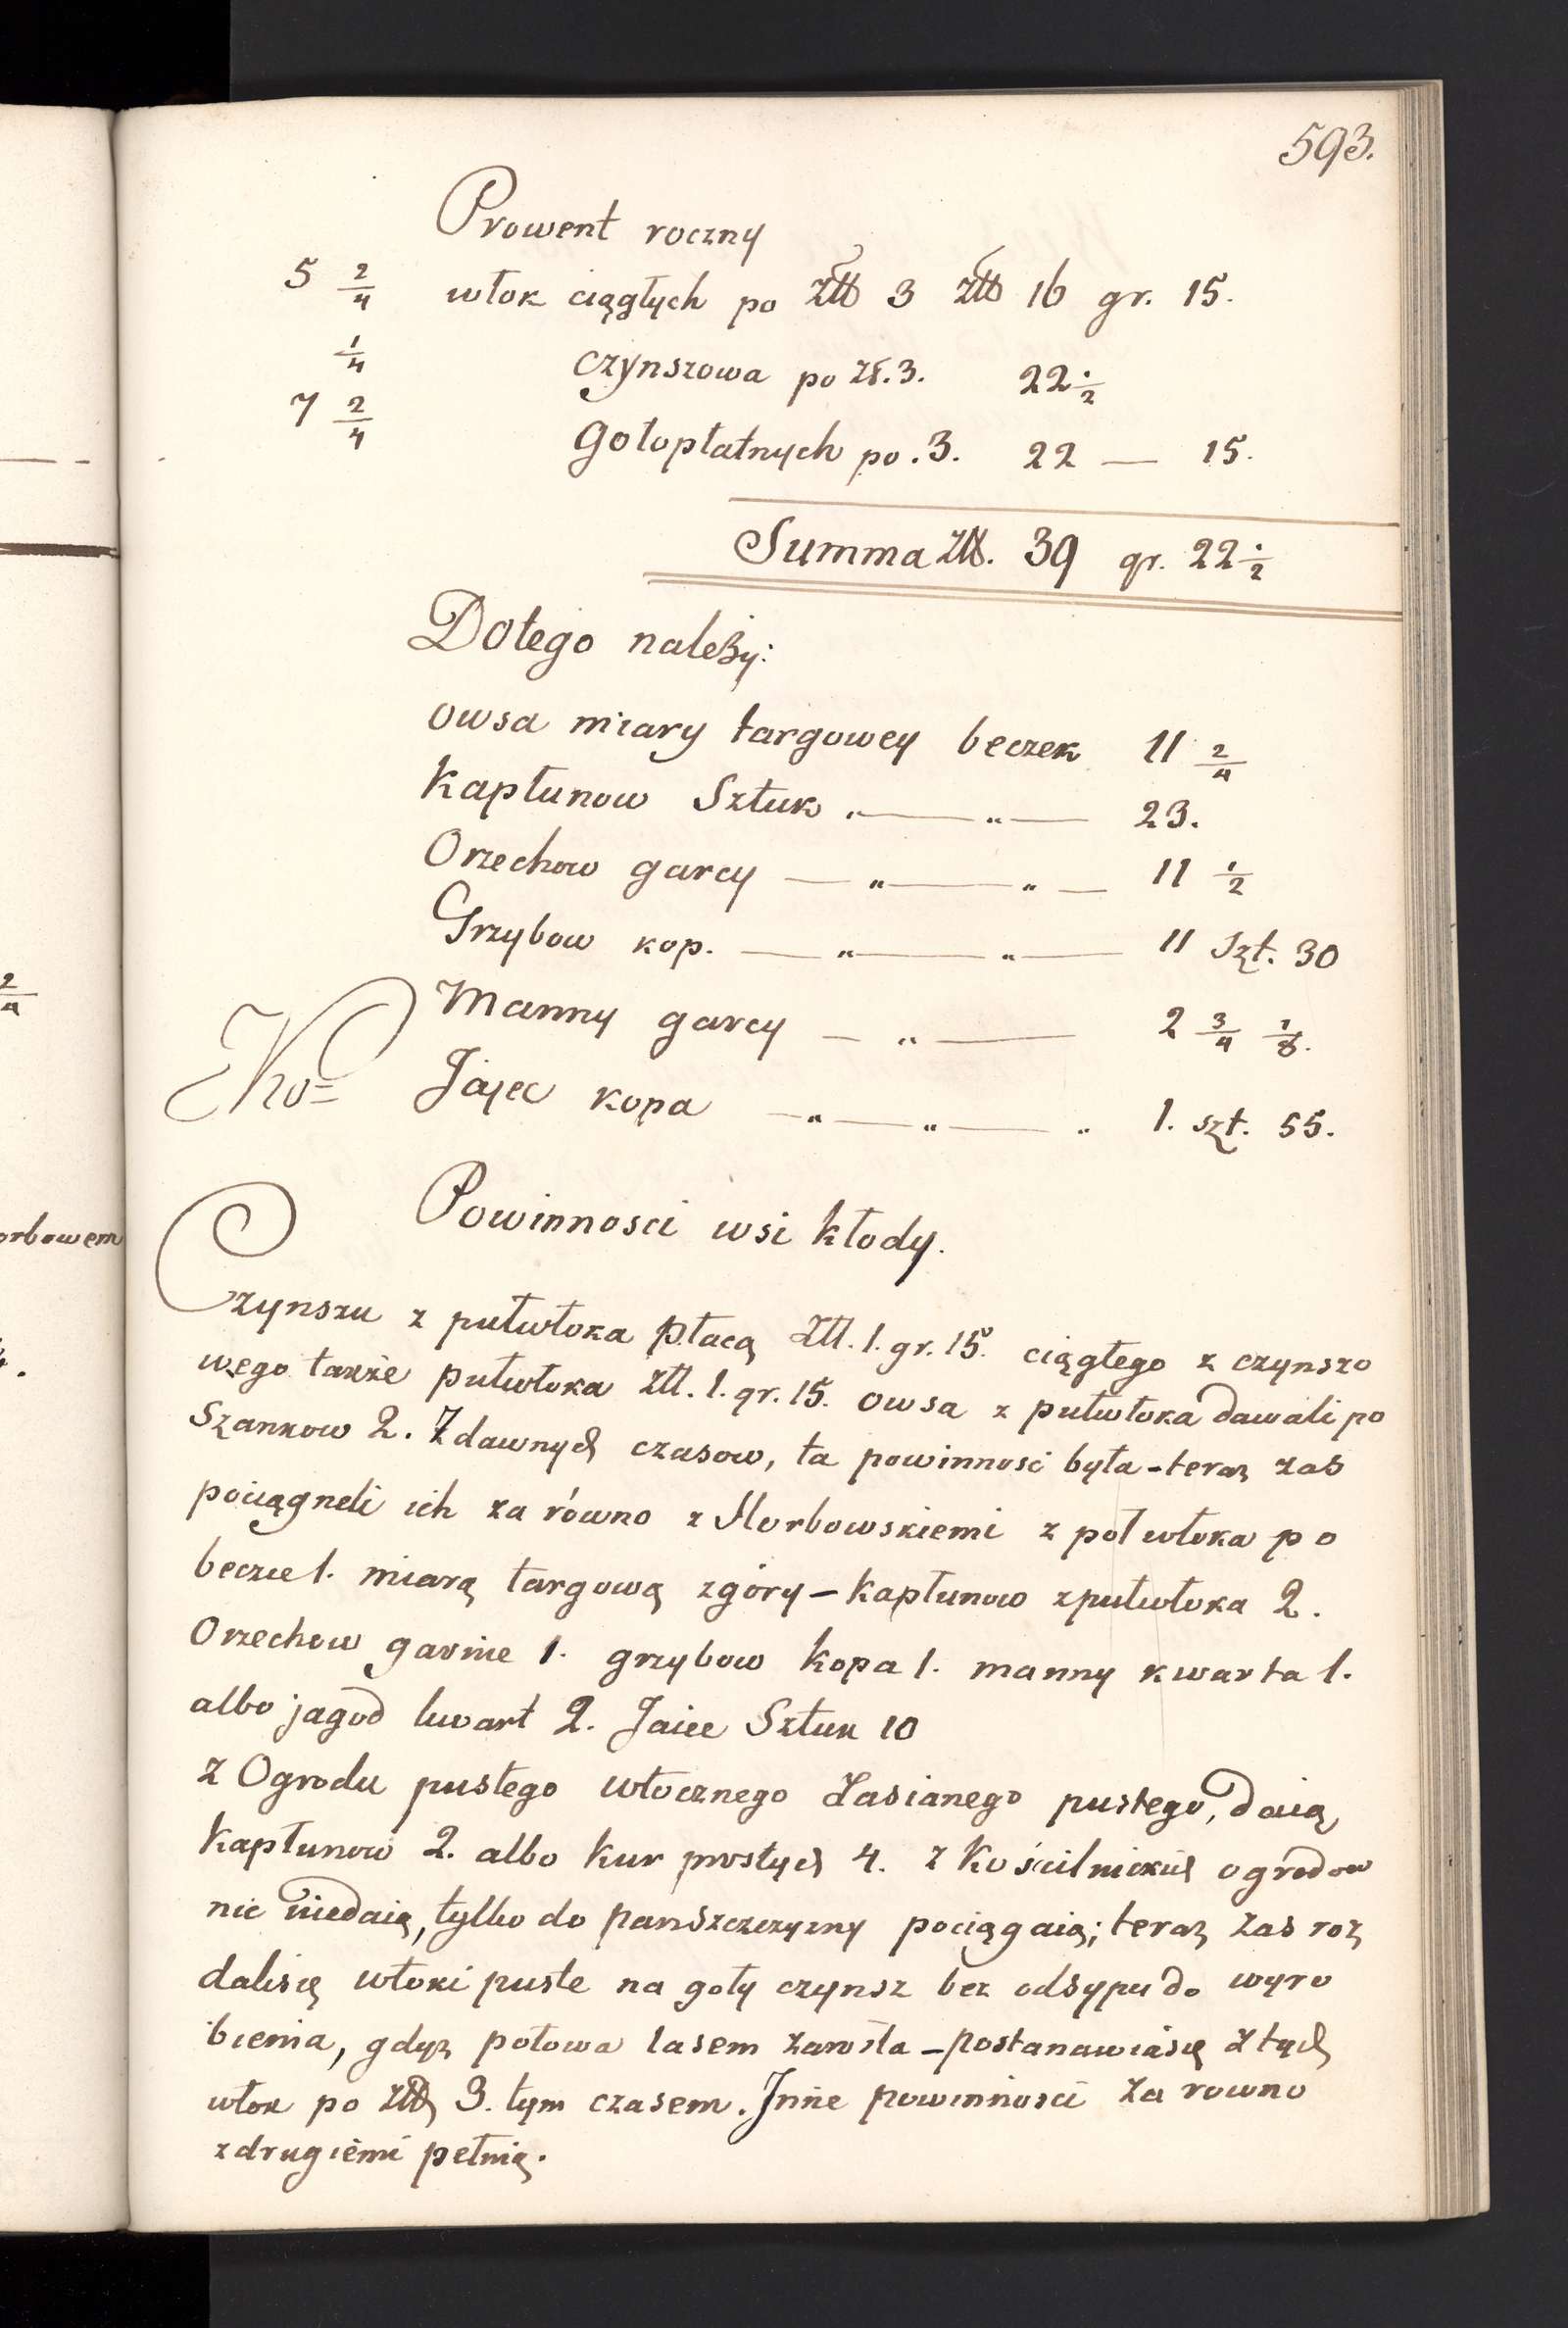 593.
Prowent roczny
5 2/4 włok ciągłych po złł 3 złł 16 gr. 15.
1/4 czynszowa po zł. 3. 22 1/2
7 2/4 gołopłatnych po. 3. 22 — 15.
Summa złł. 39 gr. 22 1/2
Dotego należy:
owsa miary targowey beczek 11 2/4
Kapłunow Sztuk „ — „ — 23.
Orzechow garcy — „ — „ — 11 1/2
Grzybow kop. — „ — „ — 11 Szt. 30
Manny garcy — „ — 2 3/4 1/8.
Jajec kopa — „ — „ — „ 1. szt. 55.
Powinnosci wsi kłody.
Czynszu z pułwłoka płacą złł. 1. gr. 15. ciągłego z czynszo
wego także pułwłoka złł. 1. gr. 15. owsa z pułwłoka dawali po
Szankow 2. Z dawnych czasow, ta powinność była - teraz zas
pociągneli ich za równo z Horbowskiemi z poł włoka po
beczce 1. miarą targową zgóry — kapłunow z pułwłoka 2.
Orzechow garnie 1. grzybow kopa 1. manny kwarta 1.
albo jagod kwart 2. Jaiec Sztuk 10
z Ogrodu pustego włocznego Zasianego pustego, daią
Kapłunow 2. albo kur prostych 4. z Kościelnickich ogrodow
nic niedaią, tylko do panszczczyzny pociągaią; teraz zas roz
dalisię włoki puste na goły czynsz bez odsypu do wyro
bienia, gdyz połowa lasem zarosła — postanawiasię z tych
włok po złł 3. tym czasem. Inne powinności za rowno
z drugiemi pełnią.
orbowem
2/4